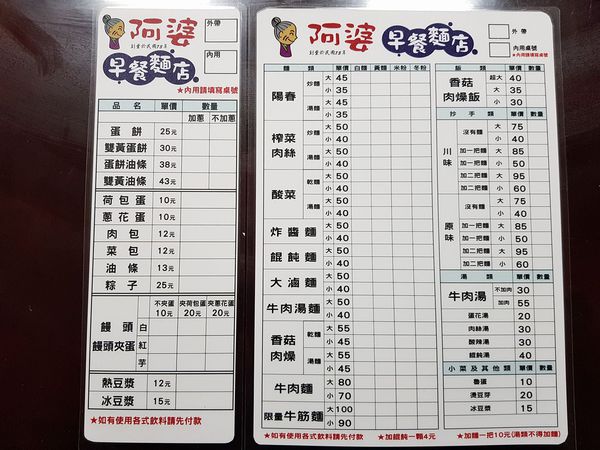 阿婆
創業於民國78年
早餐麵店
外帶
內用
★內用請填寫桌號
品名 單價 數量
加蔥 不加蔥
蛋餅 25元
雙黃蛋餅 30元
蛋餅油條 38元
雙黃油條 43元
荷包蛋 10元
蔥花蛋 10元
肉包 12元
菜包 12元
油條 13元
粽子 25元
不夾蛋 10元 夾荷包蛋 20元 夾蔥花蛋 20元
饅頭
饅頭夾蛋
白
紅
芋
熱豆漿 12元
冰豆漿 15元
★如有使用各式飲料請先付款
阿婆
創業於民國78年
早餐麵店
外帶
內用桌號
★內用請填寫桌號
麵類 單價 白麵 黃麵 米粉 冬粉
陽春 炒麵 大 45
小 35
湯麵 大 45
小 35
榨菜肉絲 炒麵 大 50
小 40
湯麵 大 50
小 40
酸菜 乾麵 大 50
小 40
湯麵 大 50
小 40
炸醬麵 大 50
小 40
餛飩麵 大 50
小 40
大滷麵 大 50
小 40
牛肉湯麵 大 50
小 40
香菇肉燥 乾麵 大 55
小 45
湯麵 大 55
小 45
牛肉麵 大 80
小 70
限量牛筋麵 大 100
小 90
飯類 單價 數量
香菇肉燥飯 超大 40
大 35
小 30
抄手類 單價 數量
川味 沒有麵 大 75
小 40
加一把麵 大 85
小 50
加二把麵 大 95
小 60
原味 沒有麵 大 75
小 40
加一把麵 大 85
小 50
加二把麵 大 95
小 60
湯類 單價 數量
牛肉湯 不加肉 30
加肉 55
蛋花湯 20
肉絲湯 30
酸辣湯 30
餛飩湯 40
小菜及其他類 單價 數量
魯蛋 10
燙豆芽 20
冰豆漿 15
★如有使用各式飲料請先付款 ★加餛飩一顆4元 ★加麵一把10元(湯類不得加麵)